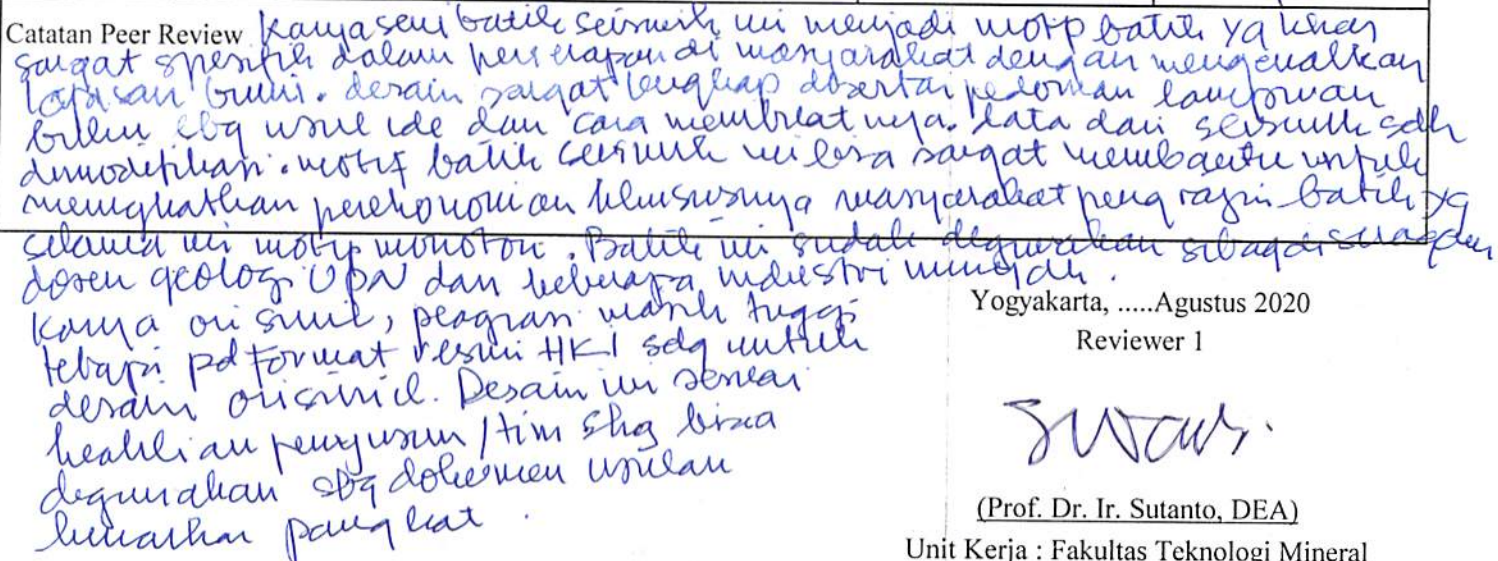 Catatan Peer Review Karya seni batik seismik ini menjadi motip batik yg khas
sangat spesifik dalam penerapan di masyarakat dengan mengenalkan
lapisan bumi. desain sangat lengkap disertai pedoman
sbg usul ide dan cara membuatnya. data dari seismik sdh
dimodifikasi. motif batik seismik ini bisa sangat membantu untuk
meningkatkan perekonomian khususnya masyarakat pengrajin batik yg
selama ini motip monoton. Batik ini sudah digunakan sebagai seragam
dosen geologi UPN dan beberapa industri minyak.
Karya orisinil, masih tinggi
tetapi pd format resmi HKI sdg untuk
desain orisinil. Desain ini sesuai
keahlian penyusun / tim shg bisa
digunakan sbg dokumen usulan
kenaikan pangkat.
Yogyakarta, .....Agustus 2020
Reviewer 1
(Prof. Dr. Ir. Sutanto, DEA)
Unit Kerja : Fakultas Teknologi Mineral